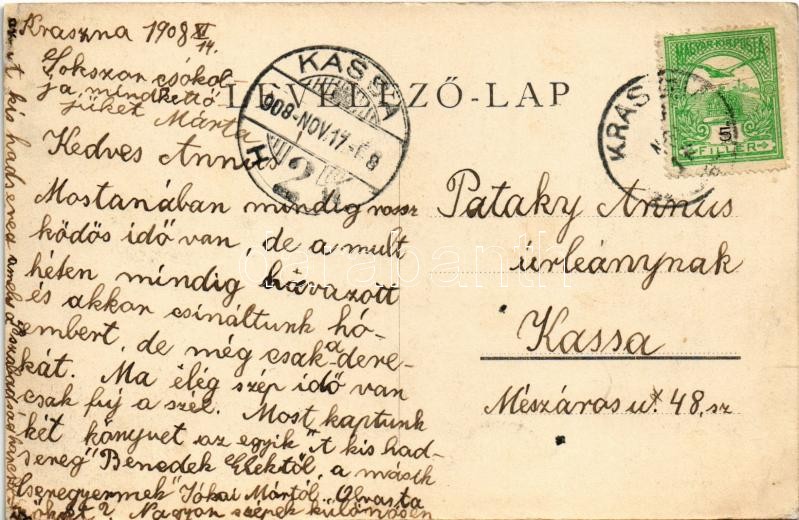 Kraszna 1908 XI
14.
Sokszor csókol
ja mindkettő
jüket Márta
Kedves Annus
Mostanában mindig rossz
ködös idő van, de a mult
héten mindig havazott
és akkor csináltunk hó-
embert, de még csak a dere-
kát. Ma elég szép idő van
csak fúj a szél. Most kaptunk
két könyvet az egyik "A kis had-
sereg" Benedek Elektől, a másik
Cseregyermek" Jókai Mórtól. Olvasta
őket? Nagyon szépek különösen
a kis hadsereg amely a szabadság
LEVELEZŐ-LAP
KASSA
908-NOV.17-
H
2
MAGYAR KIR. POSTA
5
FILLÉR
KRASZNA
Pataky Annus
úrleánynak
Kassa
Mészáros u. 48. sz
darabanth